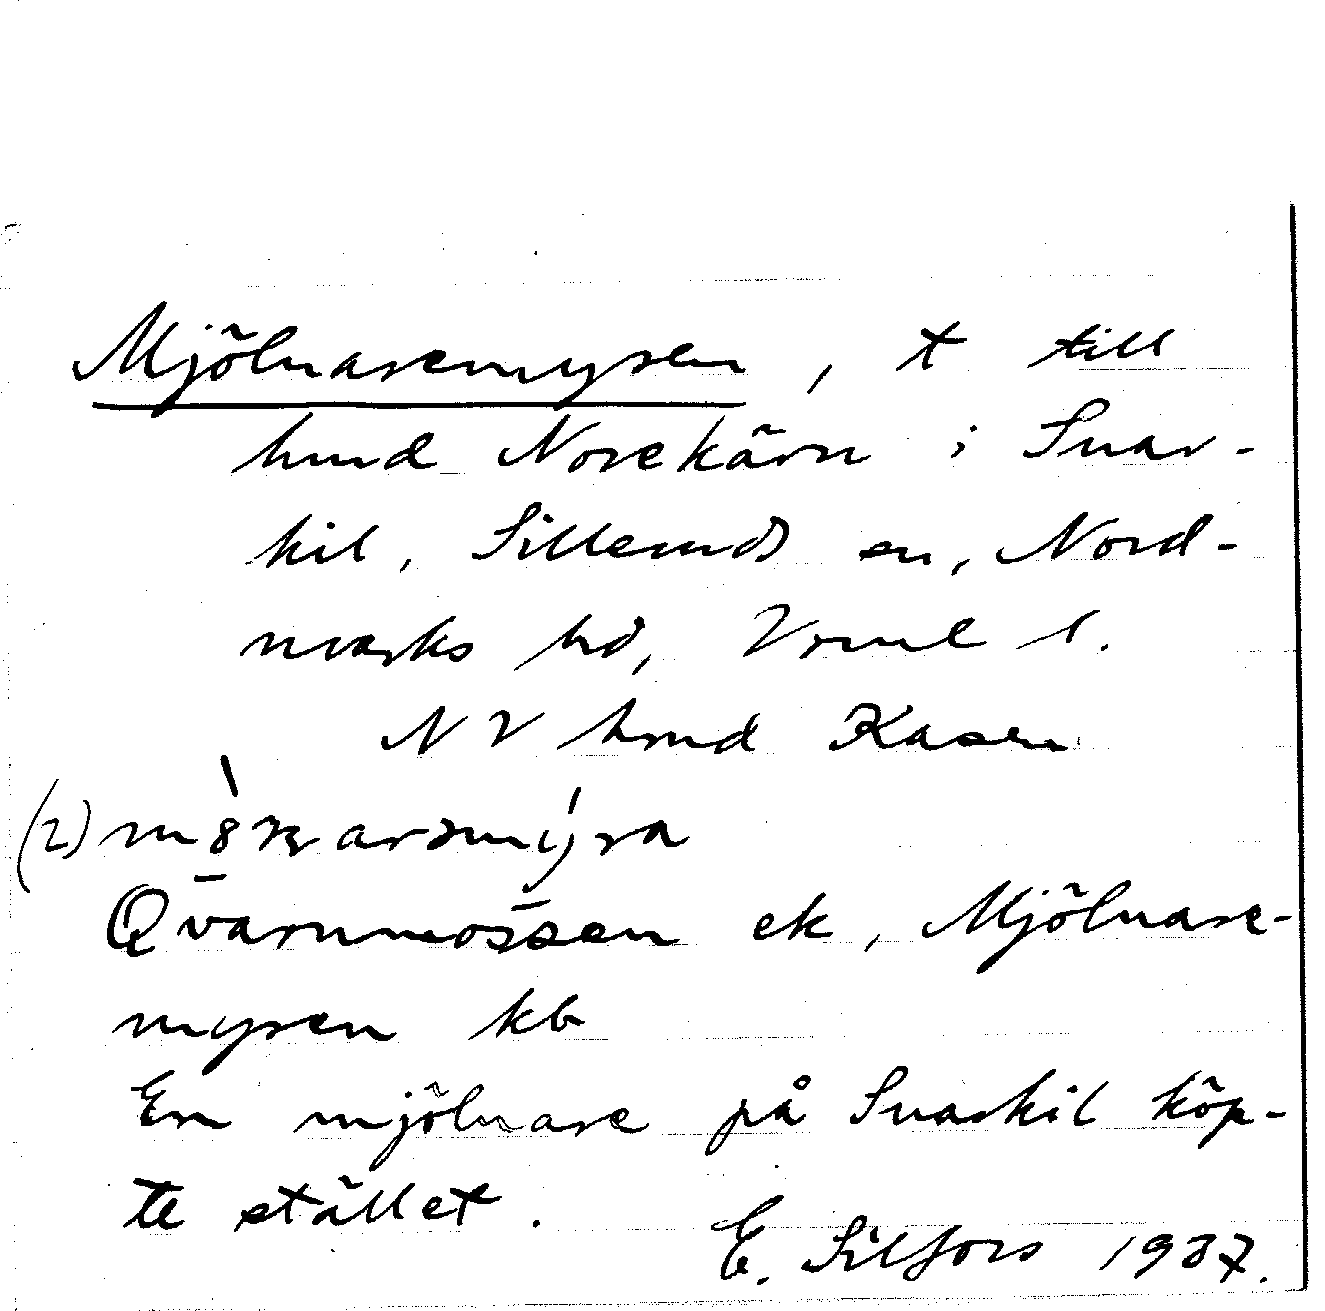 Mjölnaremyren, t till
hmd Norekärn i Svar-
kil, Sillerud sn, Nord-
marks hd, Vrml l.
NV hmd Kasen
(2)
Qvarnmossen ek, Mjölnare-
myren kb
En mjölnare på Svarkil köp-
te stället.
E. Silfors 1937.